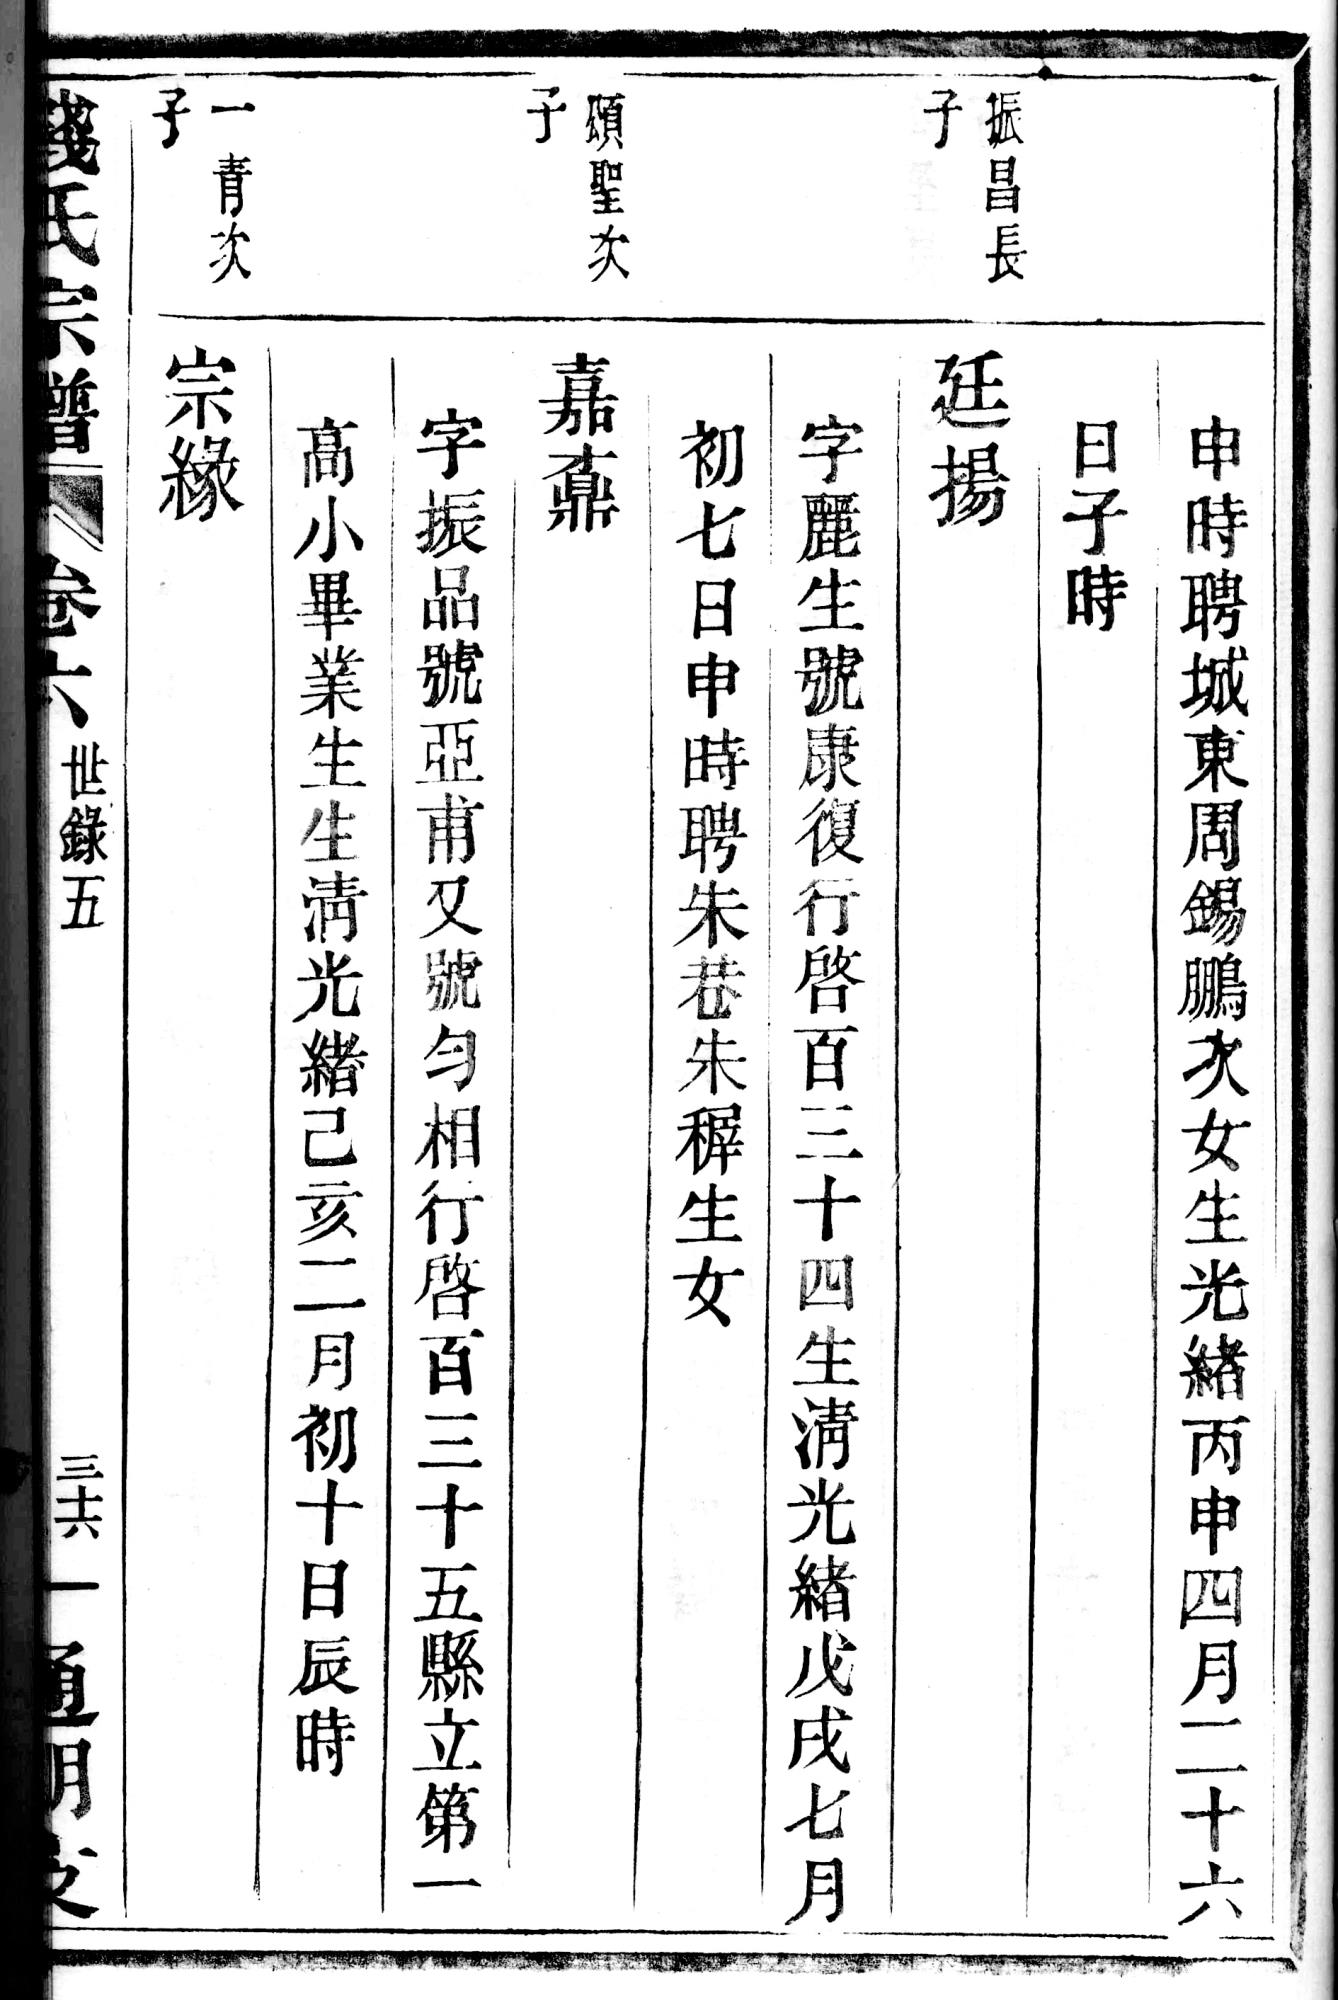 申時聘城東周錫鵬次女生光緒丙申四月二十六
日子時
振昌長
子
廷揚
字麗生號康復行啓百三十四生淸光緒戊戌七月
初七日申時聘朱巷朱穉生女
頌聖次
子
嘉鼐
字振品號亞甫又號勻相行啓百三十五縣立第一
高小畢業生生淸光緒己亥二月初十日辰時
一青次
子
宗緣
錢氏宗譜
卷六
世錄五
三十六
一
通明支